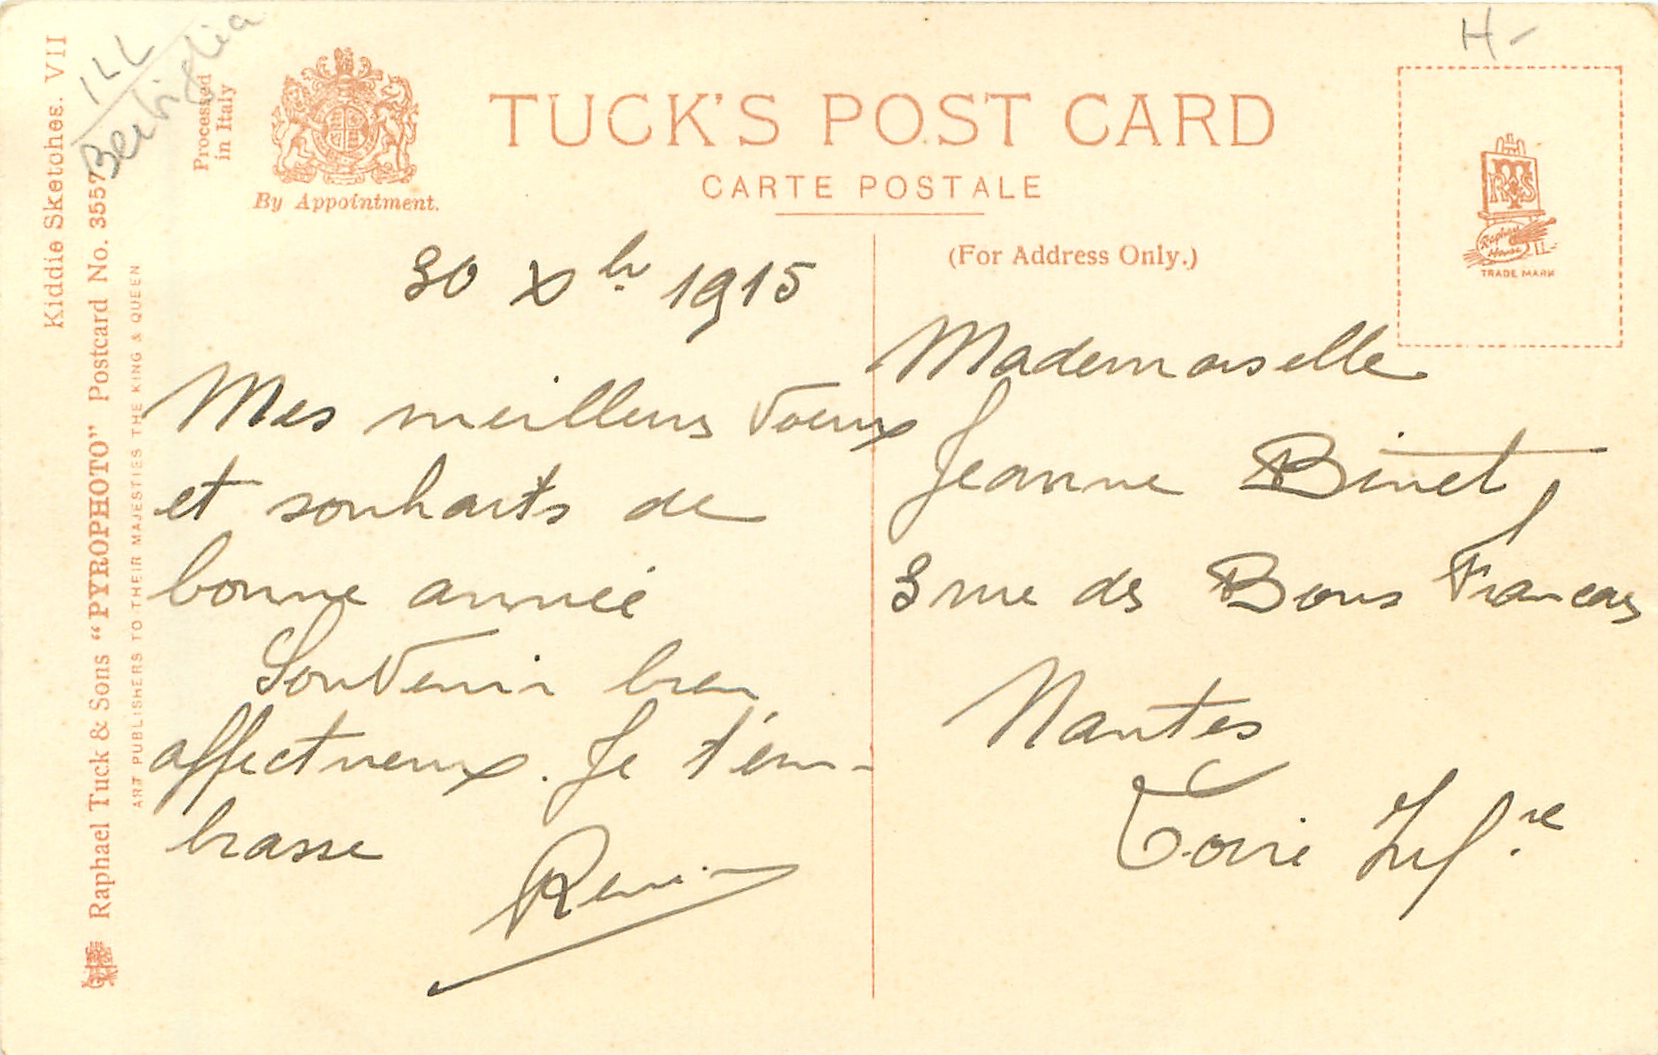 H-
ILL
Bertiglia
Kiddie Sketches. VII
Raphael Tuck & Sons "PYROPHOTO" Postcard No. 3557
ART PUBLISHERS TO THEIR MAJESTIES THE KING & QUEEN
Processed
in Italy
By Appointment.
TUCK'S POST CARD
CARTE POSTALE
(For Address Only.)
RTS
Raphael
House
TRADE MARK
30 Xbr 1915
Mes meilleurs voeux
et souhaits de
bonne année
Souvenir bien
affectueux. Je t'em-
brasse
Mademoiselle
Jeanne Binet
3 rue des Bons Français
Nantes
Loire Infre